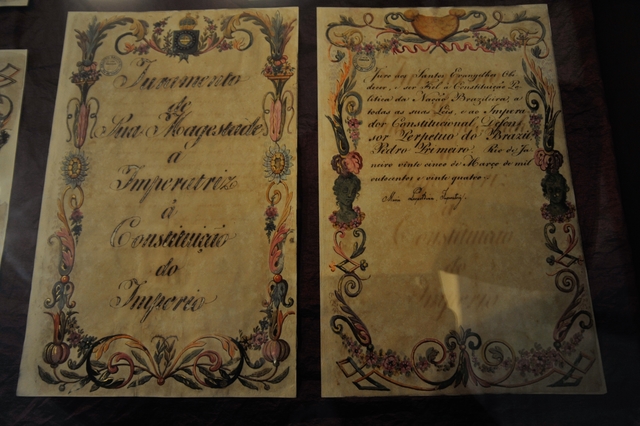 Juramento
de
Sua Magestade
a
Imperatriz
á
Constituição
do
Imperio
Juro aos Santos Evangelhos Obe
decer, e ser Fiel á Constituição Po
litica da Nação Brazileira, a
todas as suas Leis, e ao Impera
dor Constitucional, Defen
sor Perpetuo do Brazil
Pedro Primeiro. Rio de Ja
neiro vinte cinco de Março de mil
oitocentos e vinte quatro
Constituição
do
Imperio